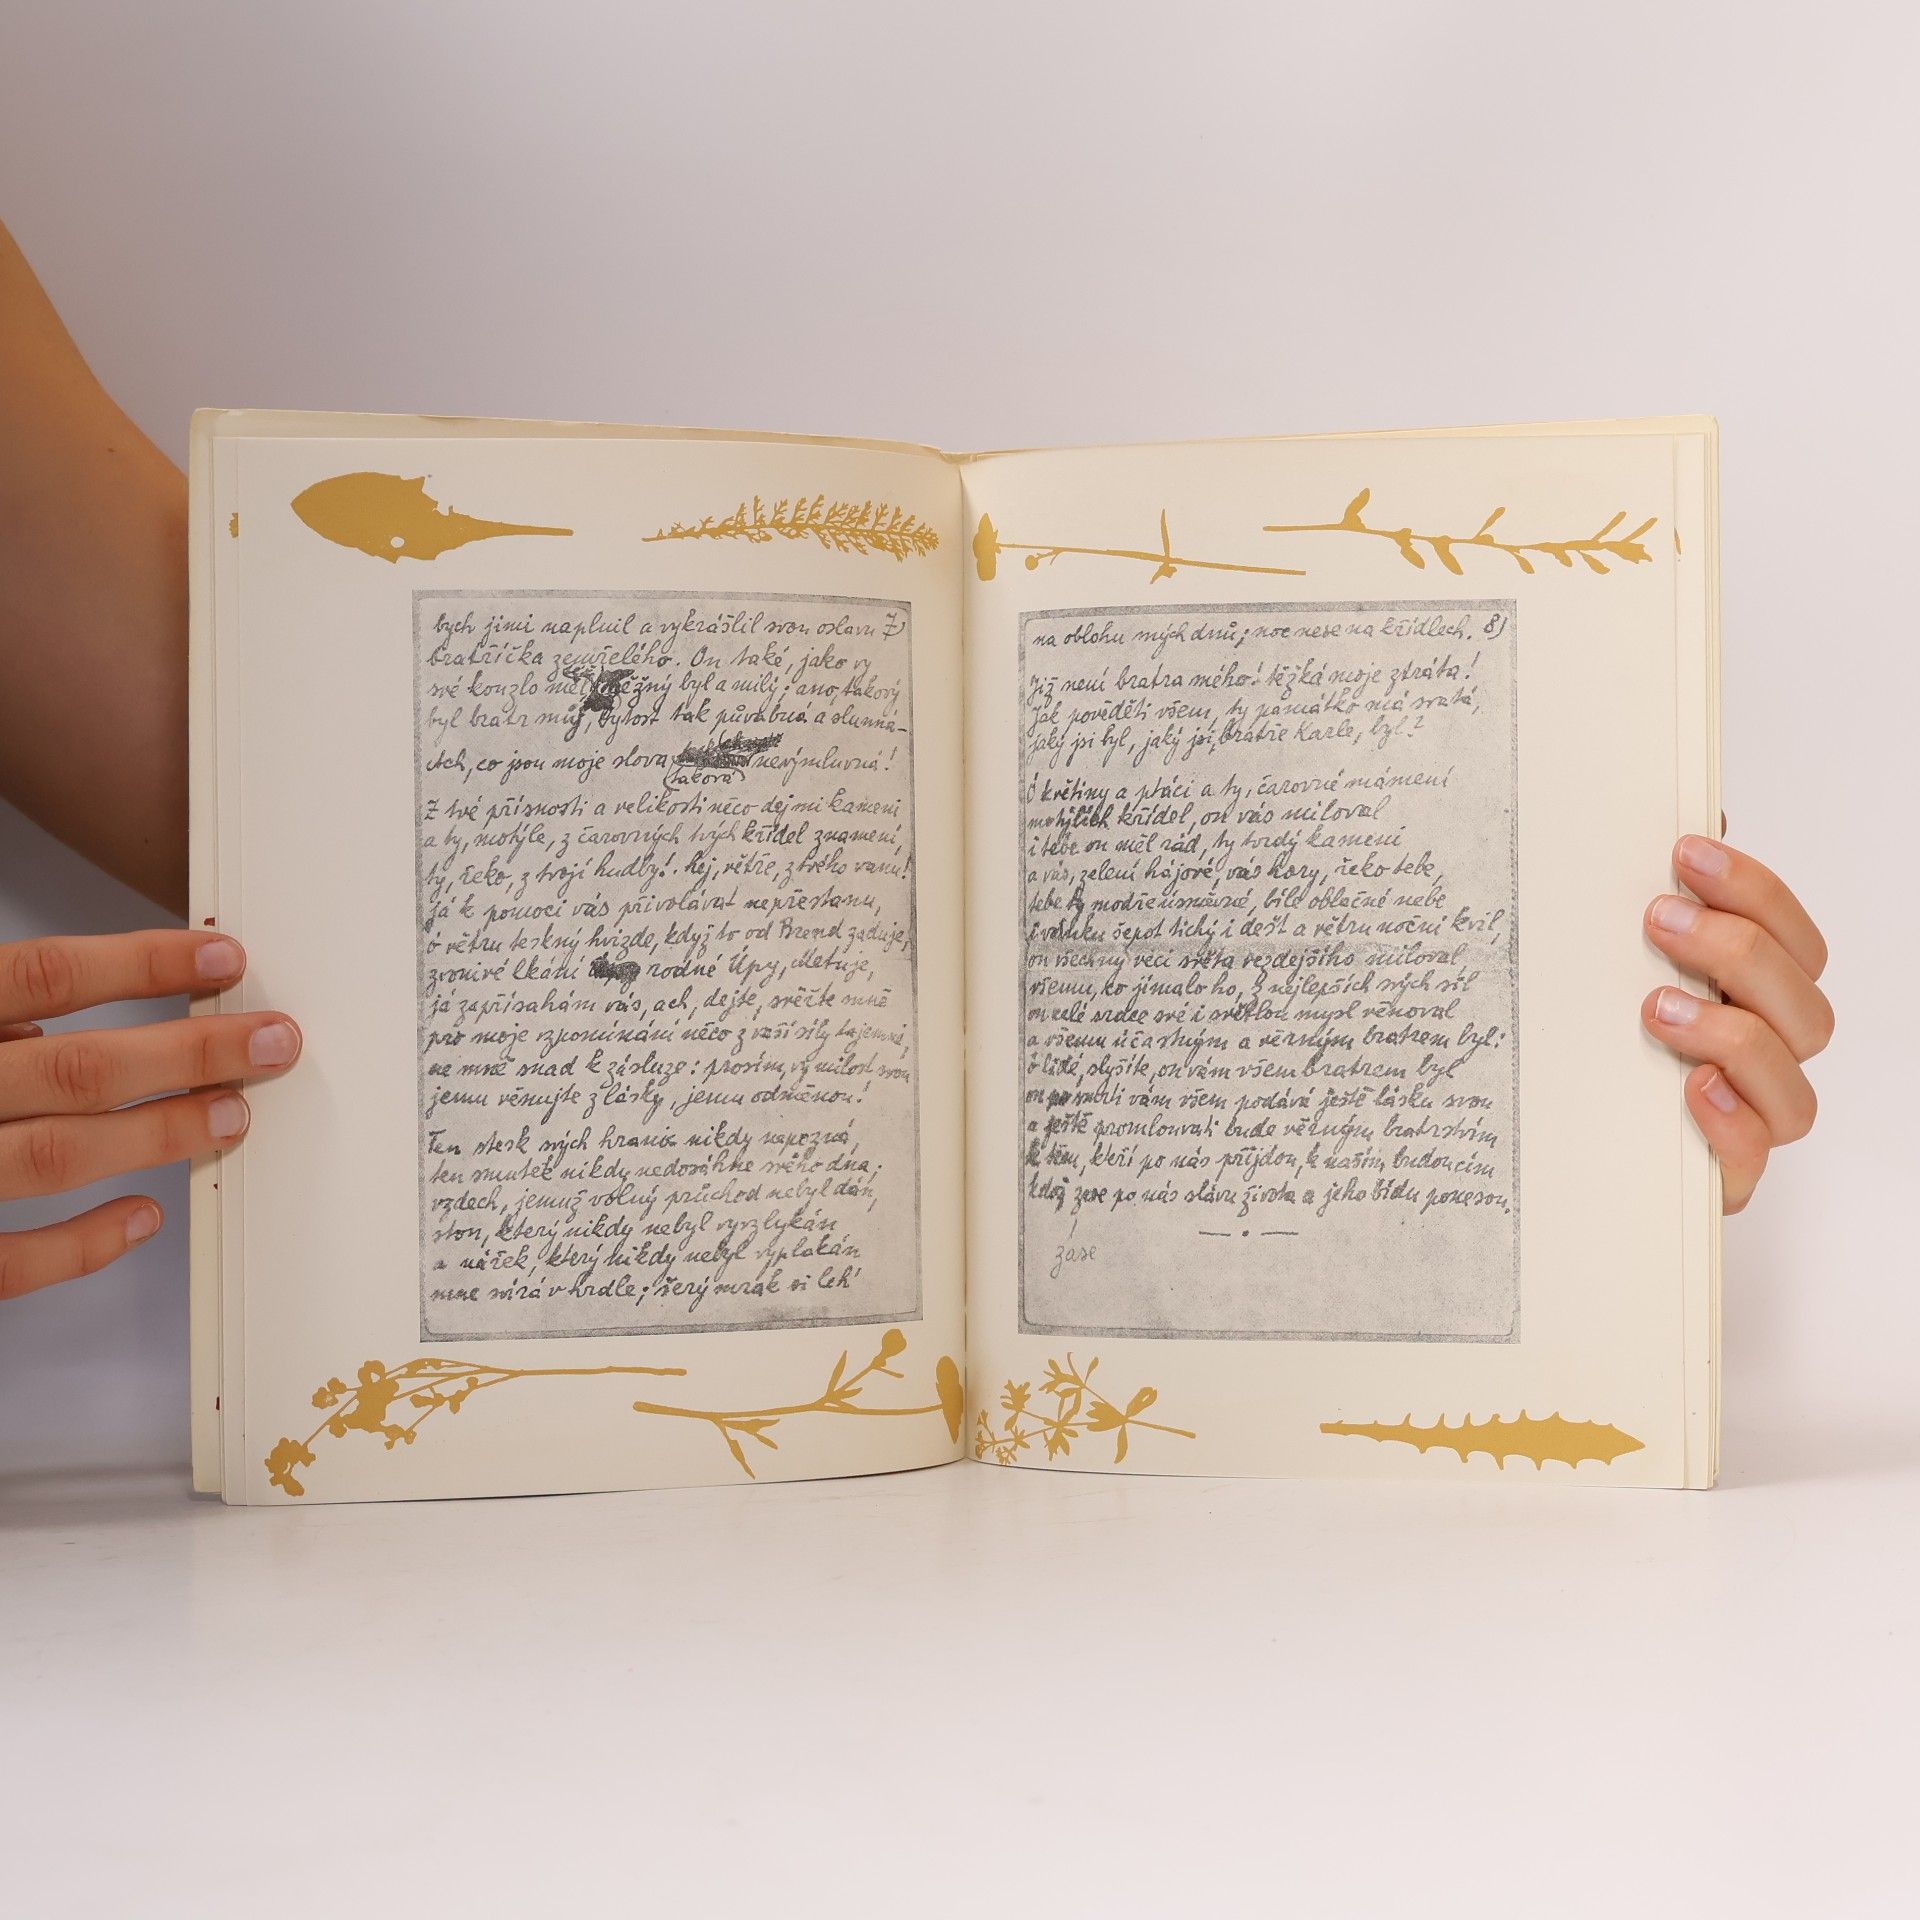 bych jimi naplnil a vykrášlil svou oslavu 7)
bratříčka zemřelého. On také, jako vy
své kouzlo měl, něžný byl a milý; ano, takový
byl bratr můj, bytost tak půvabná a slunná –
Ach, co jsou moje slova nevýmluvná!
(taková)
Z tvé přísnosti a velikosti něco dej mi kameni
a ty, motýle, z čarovných tvých křídel znamení,
ty, řeko, z tvojí hudby! hej, větře, z tvého vanu!
já k pomoci vás přivolávat nepřestanu,
ó větru teskný hvizde, když to od Brend zaduje,
zvonivé lkání rodné Úpy, Metuje,
já zapřísahám vás, ach, dejte, svěřte mně
pro moje vzpomínání něco z vaší síly tajemné,
ne mně snad k zásluze: prosím, vy milost svou
jemu věnujte z lásky, jemu odměnou!
Ten stesk svých hranic nikdy nepozná,
ten smutek nikdy nedosáhne svého dna;
vzdech, jemuž volný průchod nebyl dán,
ston, který nikdy nebyl vyvzlykán
a nářek, který nikdy nebyl vyplakán
mne svírá v hrdle; šerý mrak si leh'
na oblohu mých dnů; noc nese na křídlech. 8)
Již není bratra mého! těžká moje ztráta!
jak pověděti všem, ty památko má svatá,
jaký jsi byl, jaký jsi, bratře Karle, byl?
Ó květiny a ptáci a ty, čarovné mámení
motýlích křídel, on vás miloval
i tebe on měl rád, ty tvrdý kameni
a vás, zelení hájové, vás hory, řeko tebe,
tebe ty modře úsměvné, bíle oblačné nebe
i vánku šepot tichý i déšť a větru noční kvil,
on všechny věci světa vezdejšího miloval
všemu, co jímalo ho, z nejlepších svých sil
on celé srdce své i světlou mysl věnoval
a všemu účastným a věrným bratrem byl:
ó lidé, slyšíte, on vám všem bratrem byl
on po smrti vám všem podává ještě lásku svou
a ještě promlouvati bude věrným bratrstvím
k těm, kteří po nás přijdou, k našim budoucím
kdož zase po nás slávu života a jeho bídu ponesou.
— • —
zase